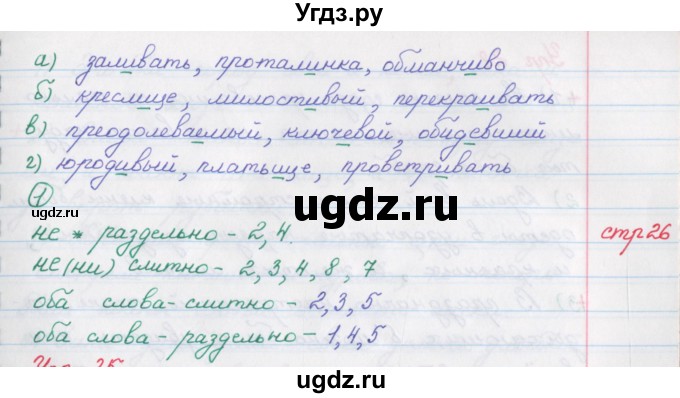 Угдз.ру
а) заливать, проталинка, обманчиво
б) креслице, милостивый, перекраивать
в) преодолеваемый, ключевой, обидевший
г) юродивый, платьице, проветривать
ugdz.ru
1
ugdz.ru
ugdz.ru
не раздельно - 2, 4.
стр 26
не(ни) слитно - 2, 3, 4, 8, 7
оба слова - слитно - 2, 3, 5
ugdz.ru
оба слова - раздельно - 1, 4, 5
ugdz.ru